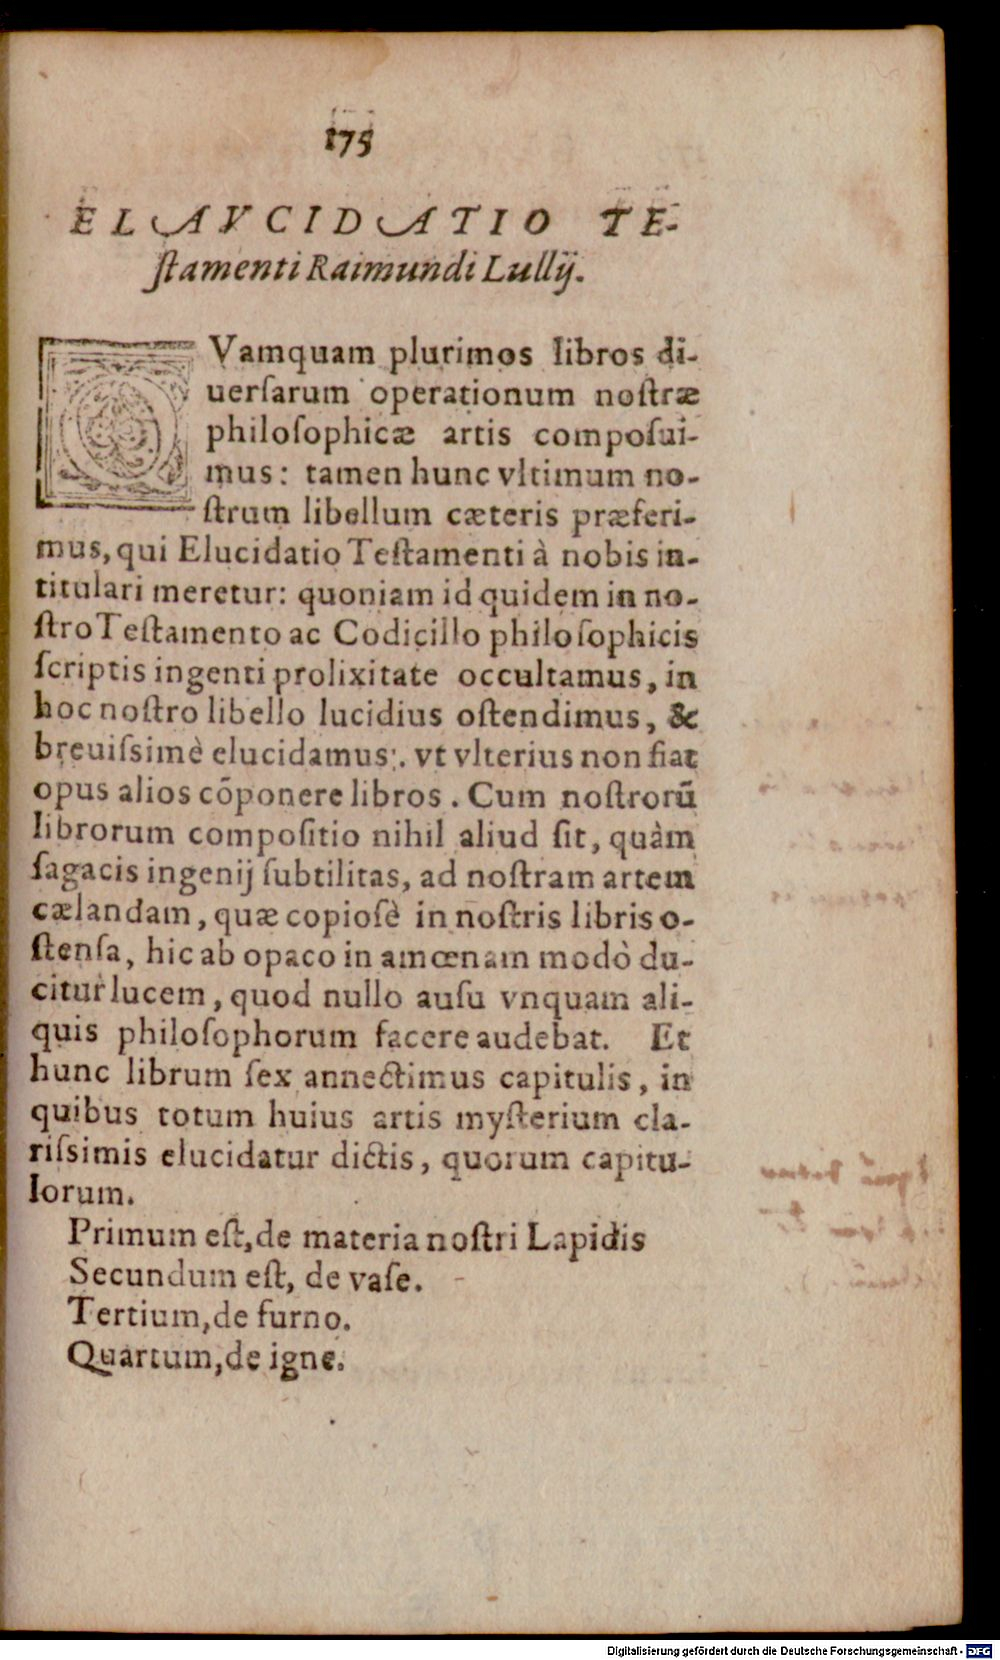 175
ELAVCIDATIO TE-
ſtamenti Raimundi Lullij.
QVamquam plurimos libros di-
uerſarum operationum noſtræ
philoſophicæ artis compoſui-
mus: tamen hunc vltimum no-
ſtrum libellum cæteris præferi-
mus, qui Elucidatio Teſtamenti à nobis in-
titulari meretur: quoniam id quidem in no-
ſtro Teſtamento ac Codicillo philoſophicis
ſcriptis ingenti prolixitate occultamus, in
hoc noſtro libello lucidius oſtendimus, &
breuiſsimè elucidamus: vt vlterius non fiat
opus alios cōponere libros. Cum noſtrorū
librorum compoſitio nihil aliud ſit, quàm
ſagacis ingenij ſubtilitas, ad noſtram artem
cælandam, quæ copioſè in noſtris libris o-
ſtenſa, hic ab opaco in amœnam modò du-
citur lucem, quod nullo auſu vnquam ali-
quis philoſophorum facere audebat. Et
hunc librum ſex annectimus capitulis, in
quibus totum huius artis myſterium cla-
riſsimis elucidatur dictis, quorum capitu-
lorum.
Primum eſt, de materia noſtri Lapidis
Secundum eſt, de vaſe.
Tertium, de furno.
Quartum, de igne.
Digitalisierung gefördert durch die Deutsche Forschungsgemeinschaft - DFG